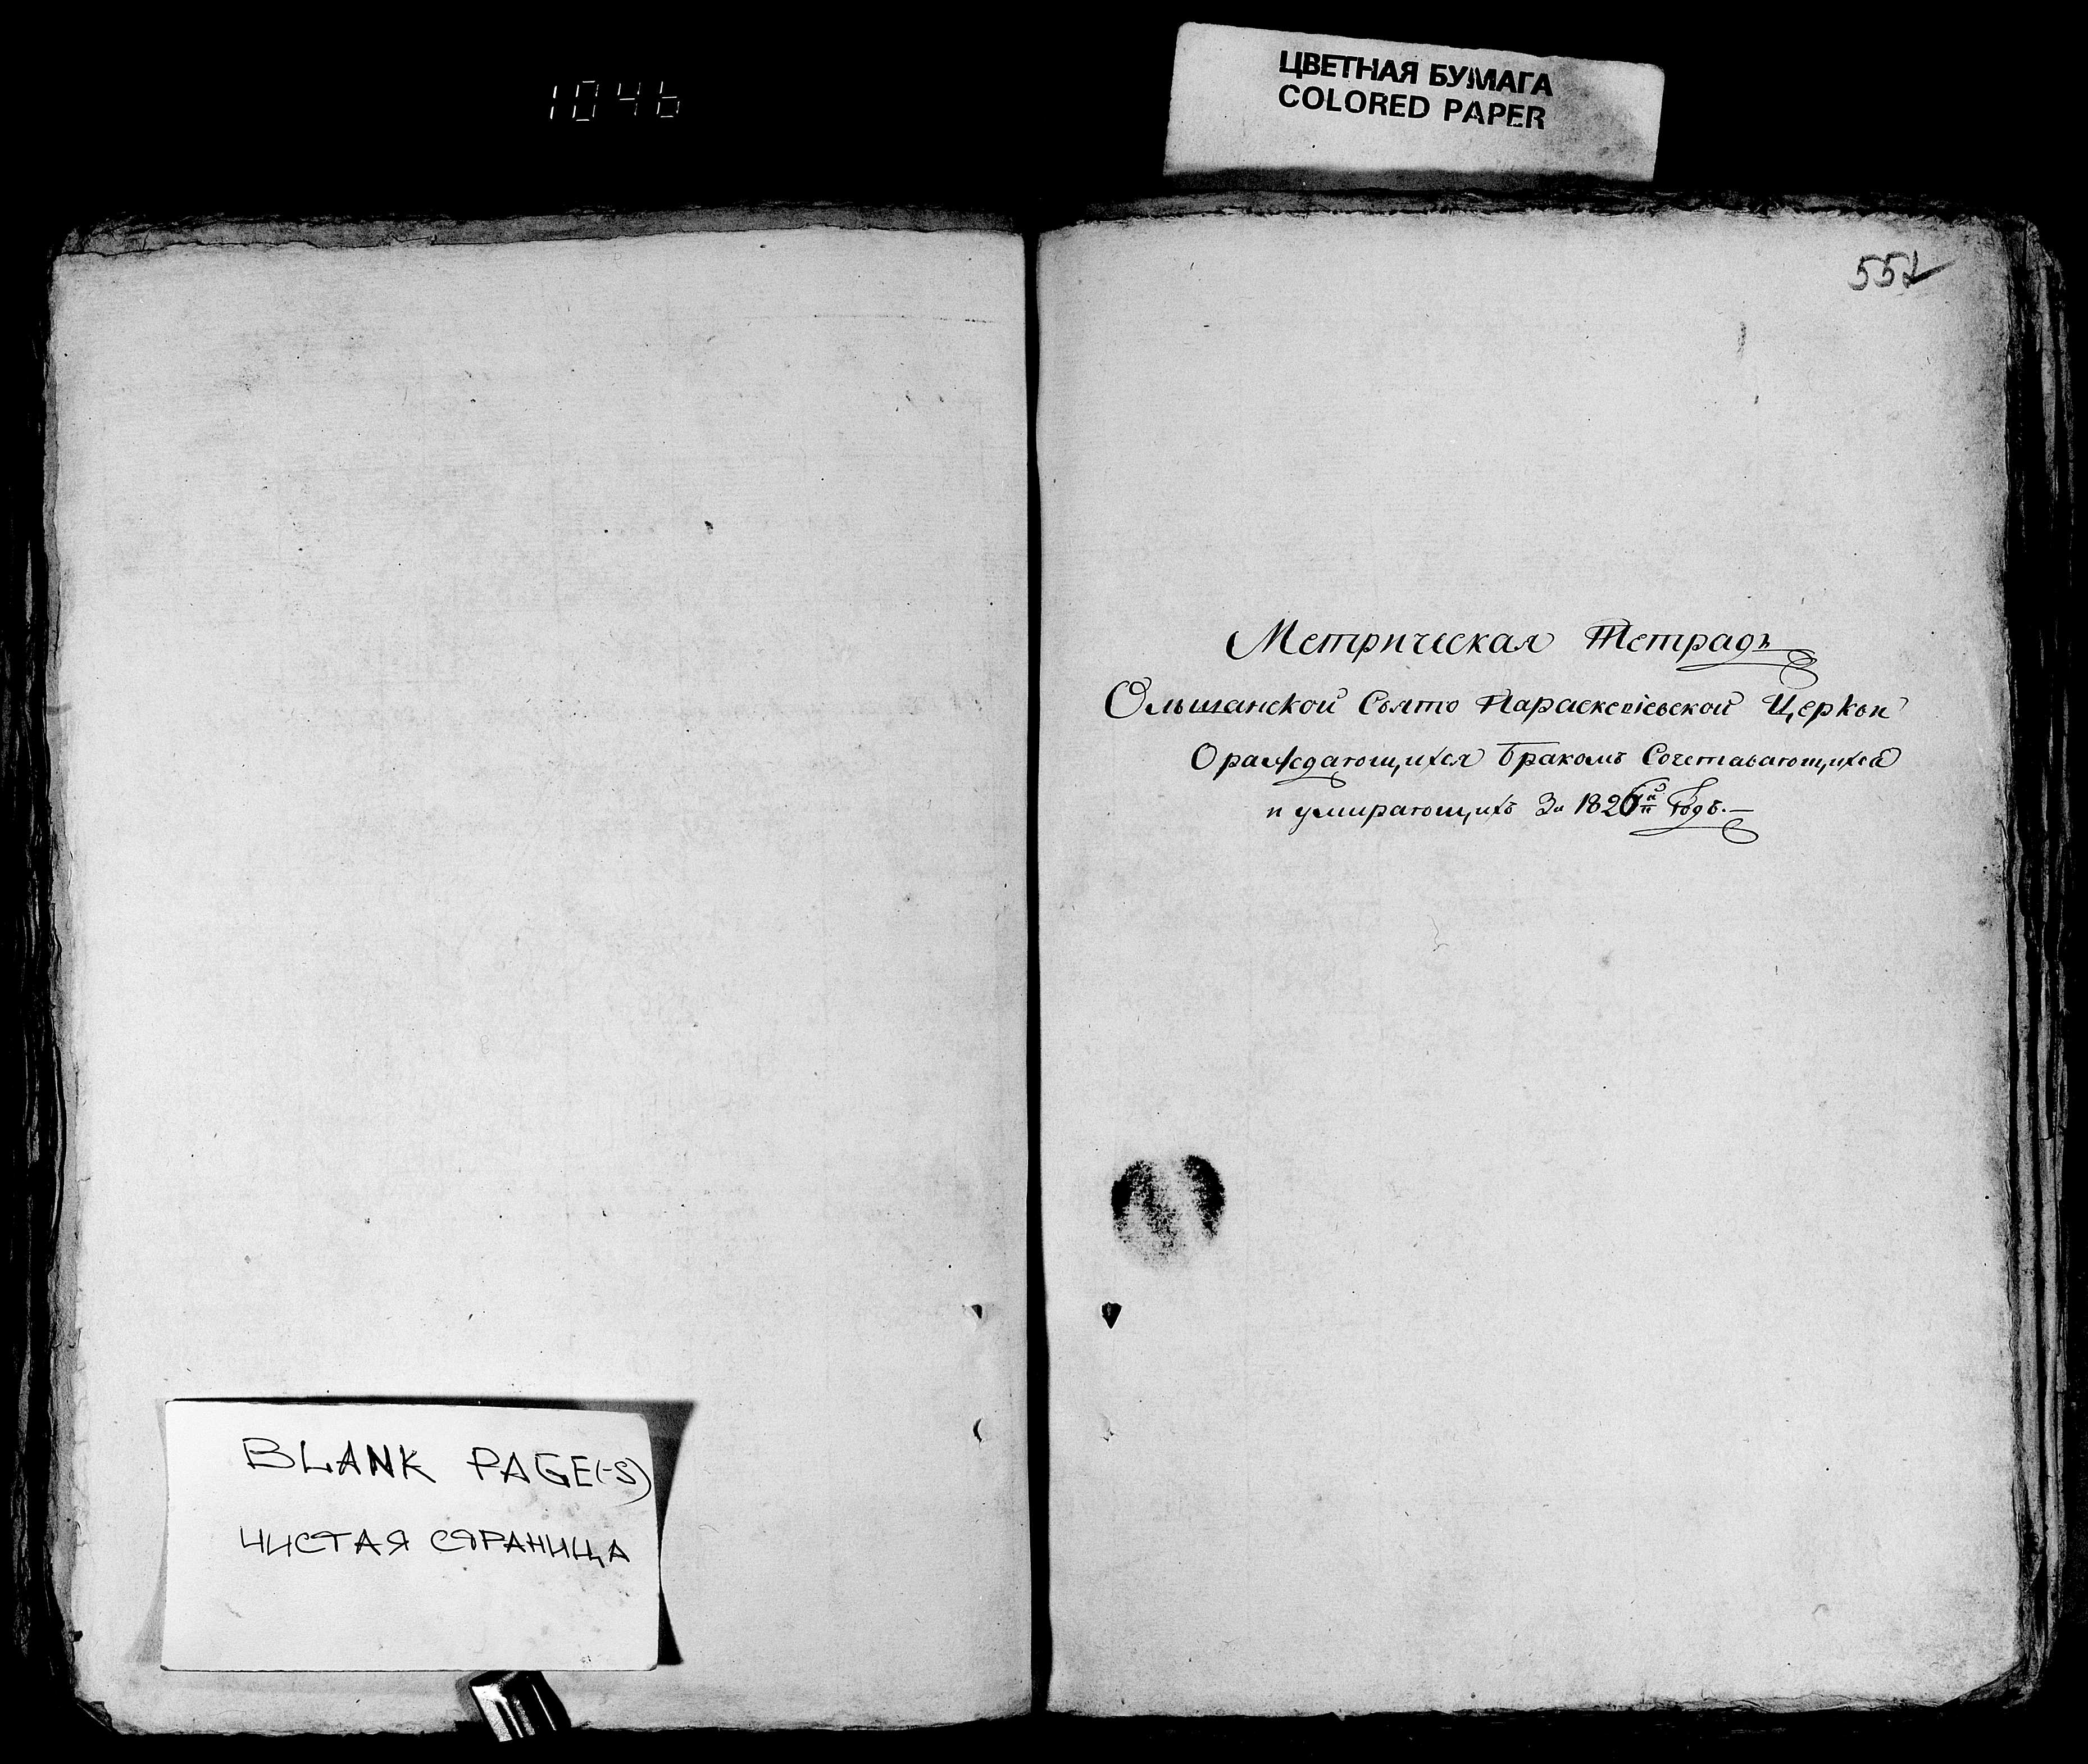 1046
ЦВЕТНАЯ БУМАГА
COLORED PAPER
Метрическая Тетрадь
Ольшанской Свято Параскевіевской Церкви
О раждающихся Бракомъ Сочетавающихся
и умирающихъ За 1826й Годъ.
BLANK PAGE(-S)
ЧИСТАЯ СТРАНИЦА